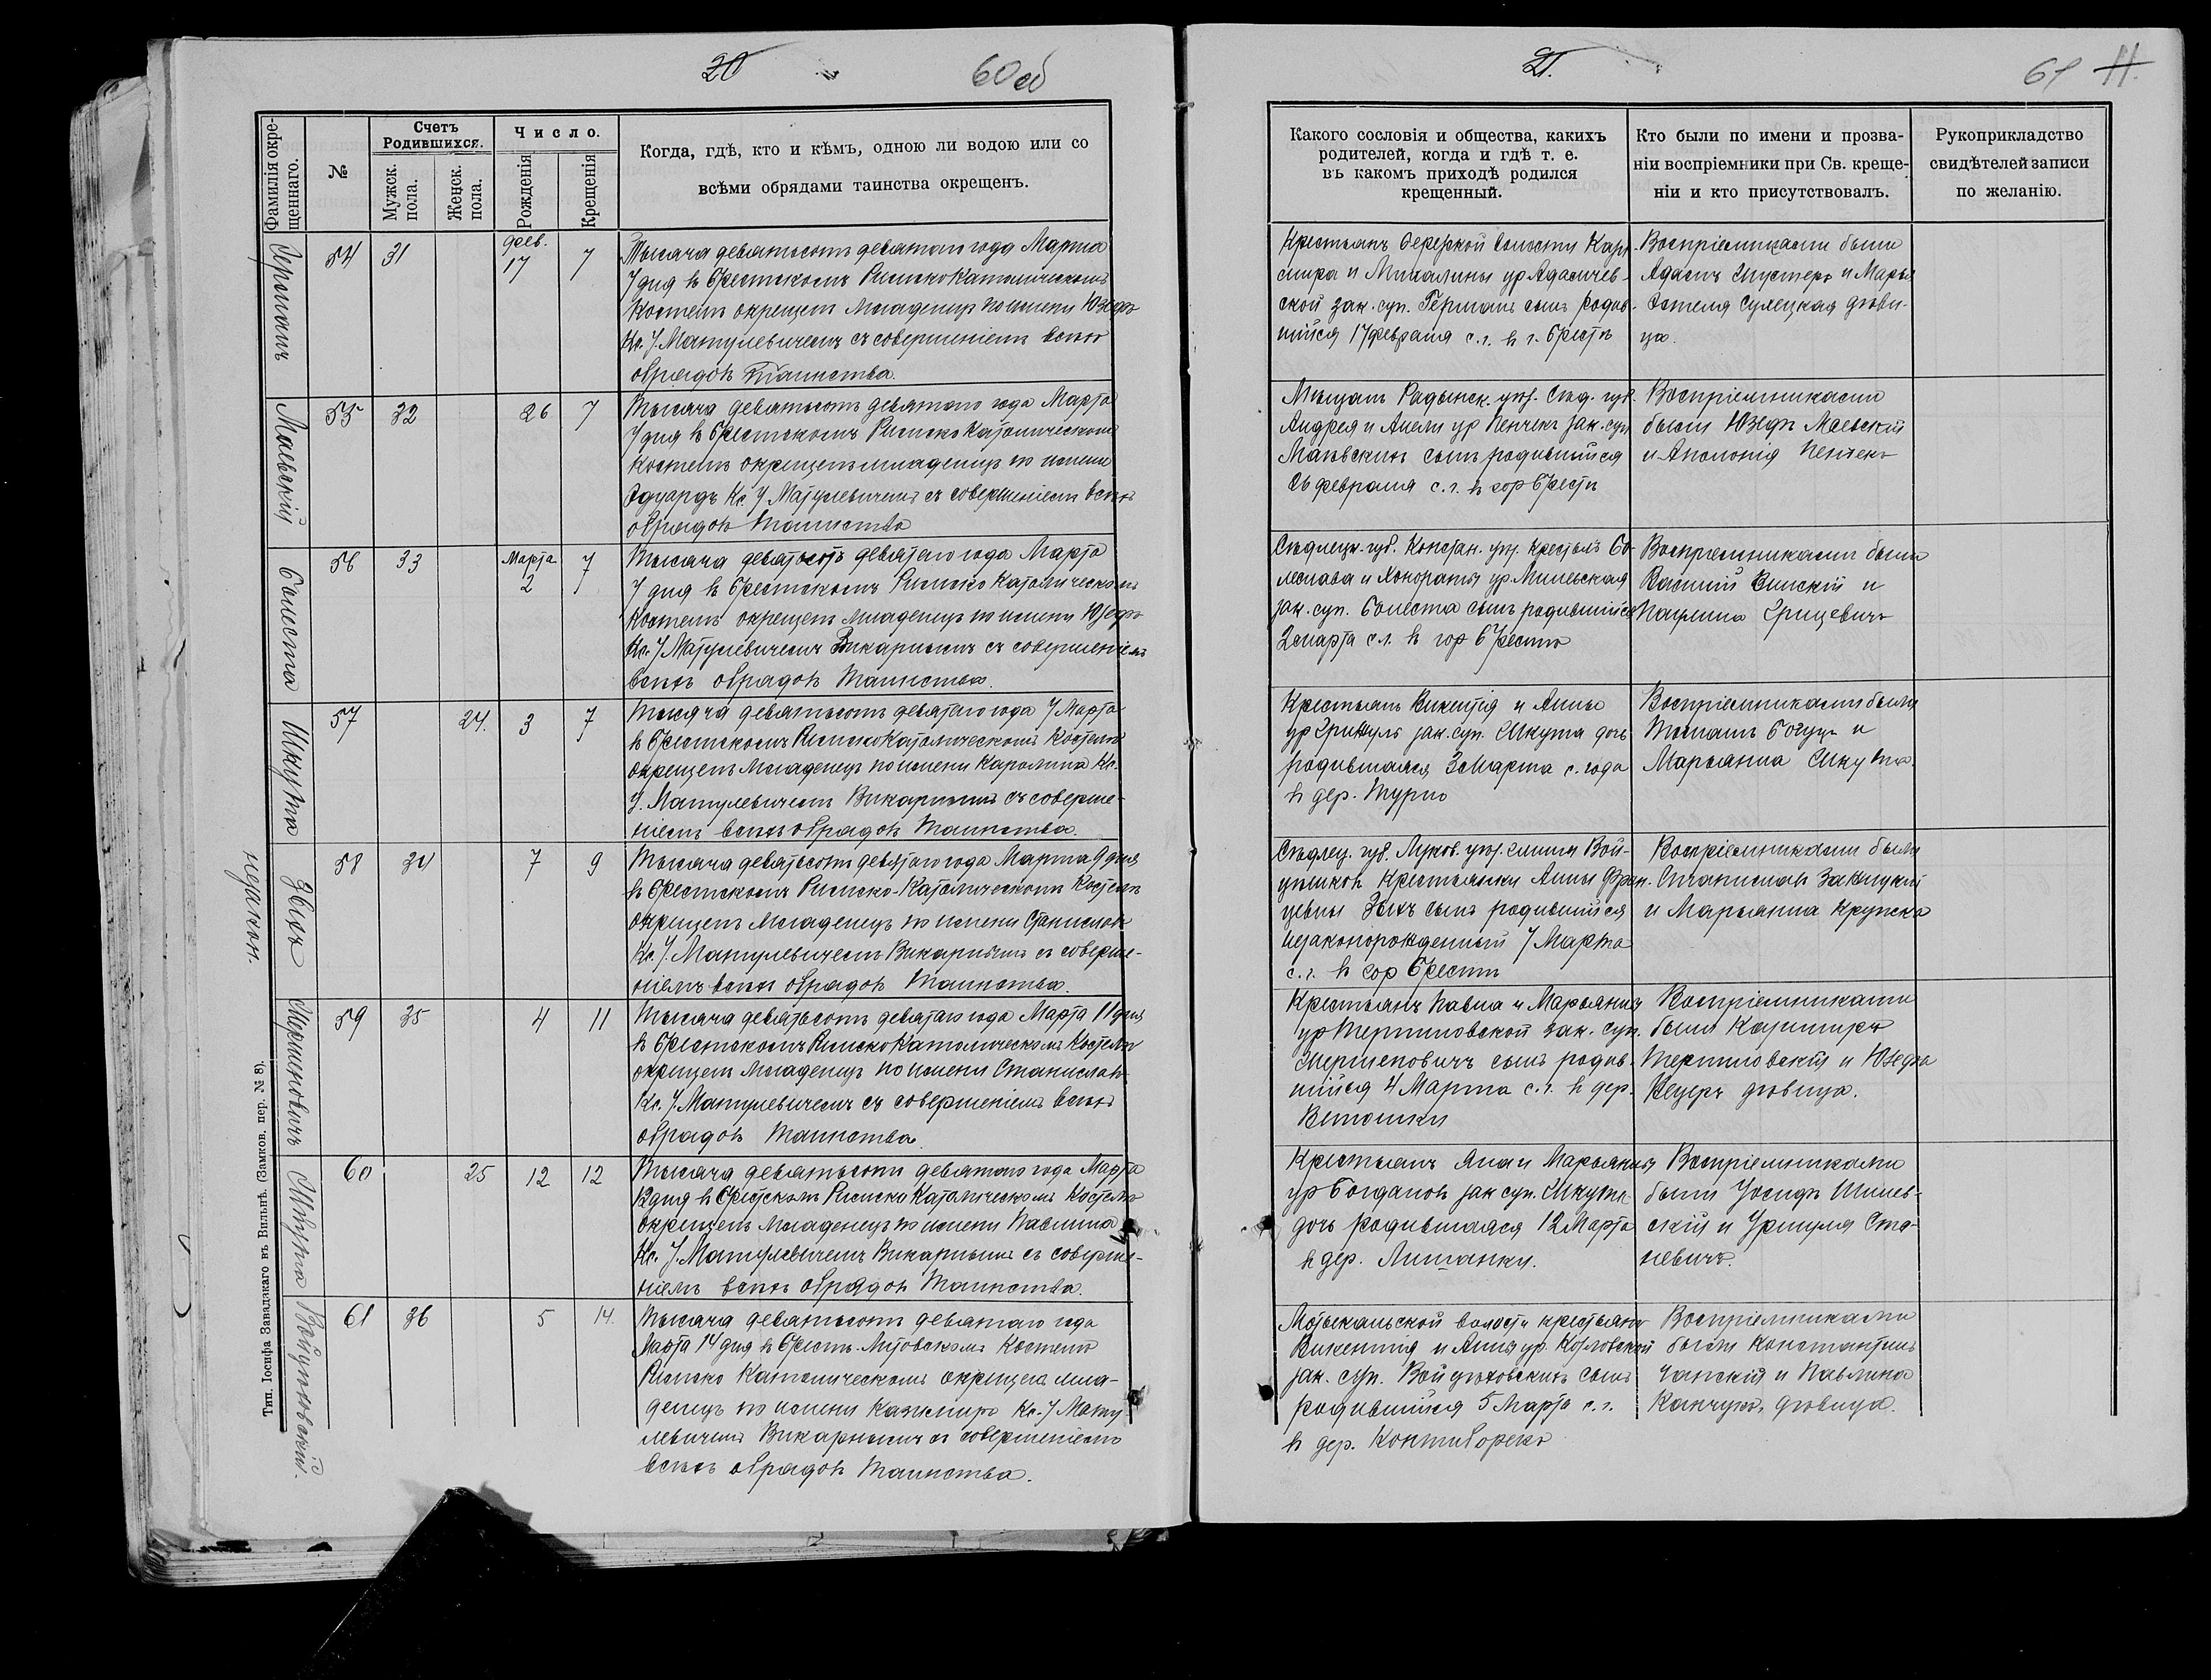 20
60 об
Фамилія окре-
щеннаго.
№
Счетъ
Родившихся.
Мужск.
пола.
Женск.
пола.
Число.
Рожденія
Крещенія
Когда, гдѣ, кто и кѣмъ, одною ли водою или со
всѣми обрядами таинства окрещенъ.
Германъ
54
31
фев.
17
7
Тысяча девятьсотъ девятаго года Марта
7 дня въ Брестскомъ Римско Католическомъ
Костелѣ окрещенъ младенецъ по имени Юзефъ
Кс. У. Матулевичемъ съ совершеніемъ всѣхъ
обрядовъ таинства.
Маевскій
55
32
26
7
Тысяча девятьсотъ девятаго года Марта
7 дня въ Брестскомъ Римско Католическомъ
Костелѣ окрещенъ младенецъ по имени
Эдуардъ Кс. У Матулевичемъ съ совершеніемъ всѣхъ
обрядовъ таинства
Болеста
56
33
Марта
2
7
Тысяча девятьсотъ девятаго года Марта
7 дня въ Брестскомъ Римско Католическомъ
Костелѣ окрещенъ младенецъ по имени Юзефъ
Кс. У Матулевичемъ Викарнымъ съ совершеніемъ
всѣхъ обрядовъ таинства.
Шкута
57
24.
3
7
Тысяча девятьсотъ девятаго года 7 Марта
въ Брестскомъ Римско Католическомъ Костелѣ
окрещенъ младенецъ по имени Каролина Кс.
У. Матулевичемъ Викарнымъ съ соверше-
ніемъ всѣхъ обрядовъ таинства.
Зыхъ
незакон.
58
34
7
9
Тысяча девятьсотъ девятаго года Марта 9 дня
въ Брестскомъ Римско-Католическомъ Костелѣ
окрещенъ младенецъ по имени Станиславъ
Кс. У. Матулевичемъ Викарнымъ съ соверше-
ніемъ всѣхъ обрядовъ таинства.
59
35
4
11
Тысяча девятьсотъ девятаго года Марта 11 дня
въ Брестскомъ Римско Католическомъ Костелѣ
окрещенъ младенецъ по имени Станиславъ
Кс. У. Матулевичемъ съ совершеніемъ всѣхъ
обрядовъ таинства.
Шкута
60
25
12
12
Тысяча девятьсотъ девятаго года Марта
12 дня въ Брестскомъ Римско Католическомъ Костелѣ
окрещенъ младенецъ по имени Павлина
Кс. У. Матулевичемъ Викарнымъ съ соверше-
ніемъ всѣхъ обрядовъ таинства.
Войцѣховскій.
61
36
5
14.
Тысяча девятьсотъ девятаго года
Марта 14 дня въ Брестъ-Литовскомъ Костелѣ
Римско Католическомъ окрещенъ мла-
денецъ по имени Казимиръ Кс. У Мату
левичемъ Викарнымъ съ совершеніемъ
всѣхъ обрядовъ таинства.
Тип. Іосифа Завадзкаго въ Вильнѣ. (Замков. пер. № 8).
21.
61
11.
Какого сословія и общества, какихъ
родителей, когда и гдѣ т. е.
въ какомъ приходѣ родился
крещенный.
Кто были по имени и прозва-
ніи воспріемники при Св. креще-
ніи и кто присутствовалъ.
Рукоприкладство
свидѣтелей записи
по желанію.
Крестьянъ волости Кази-
мира и Михалины ур Адамчев-
ской зак. суп. Германъ сынъ родив-
шійся 17 февраля с.г. въ г. Брестѣ
Воспріемниками были
Адамъ Шустеръ и Марья
Эстеля Сулецкая дѣви-
ца.
Мѣщанъ Радынск. уѣз. Сѣд. губ.
Андрея и Анели ур Пенчекъ зак. суп
Маевскихъ сынъ родившійся
26 февраля с. г. въ гор Брестѣ
Воспріемниками
были Юзефъ Маевскій
и Аполонія Пенчекъ
Сѣдлецк. губ. Констан. уѣз. крестьянъ Бо-
леслава и Хонораты ур. Милевская
зак. суп. Болеста сынъ родившійся
2 марта с.г. въ гор Брестѣ
Воспріемниками были
Василій и
Паулина Грицевичъ
Крестьянъ Викентія и Анны
ур зак. суп. Шкута дочь
родившаяся 3 Марта с. года
въ дер. Турно
Воспріемниками были
Томашъ и
Марьянна Шкута.
Сѣдлец. губ. Луков. уѣз. гмины Вой-
цѣшковъ Крестьянки Анны Фран-
цевны Зыхъ сынъ родившійся
незаконорожденный 7 Марта
с. г. въ гор Брестѣ
Воспріемниками были
Станиславъ
и Марьянна Крупска
Крестьянъ Павла и Марьянны
ур Терпиловской зак. суп.
сынъ родив-
шійся 4 Марта с.г. въ дер.
Воспріемниками
были Казимиръ
Терпиловскій и Юзефа
дѣвица.
Крестьянъ Яна и Марьянны
ур Богдановъ зак суп. Шкута
дочь родившаяся 12 Марта
въ дер.
Воспріемниками
были Іосифъ Шилев-
скій и Уршуля Ста-
невичъ.
Мотыкальской волости крестьянъ
Викентія и Анны ур. Козловской
зак. суп. Войцѣховскихъ сынъ
родившійся 5 Марта с.г.
въ дер.
Воспріемниками
были Константинъ
Чапскій и Павлина
дѣвица.